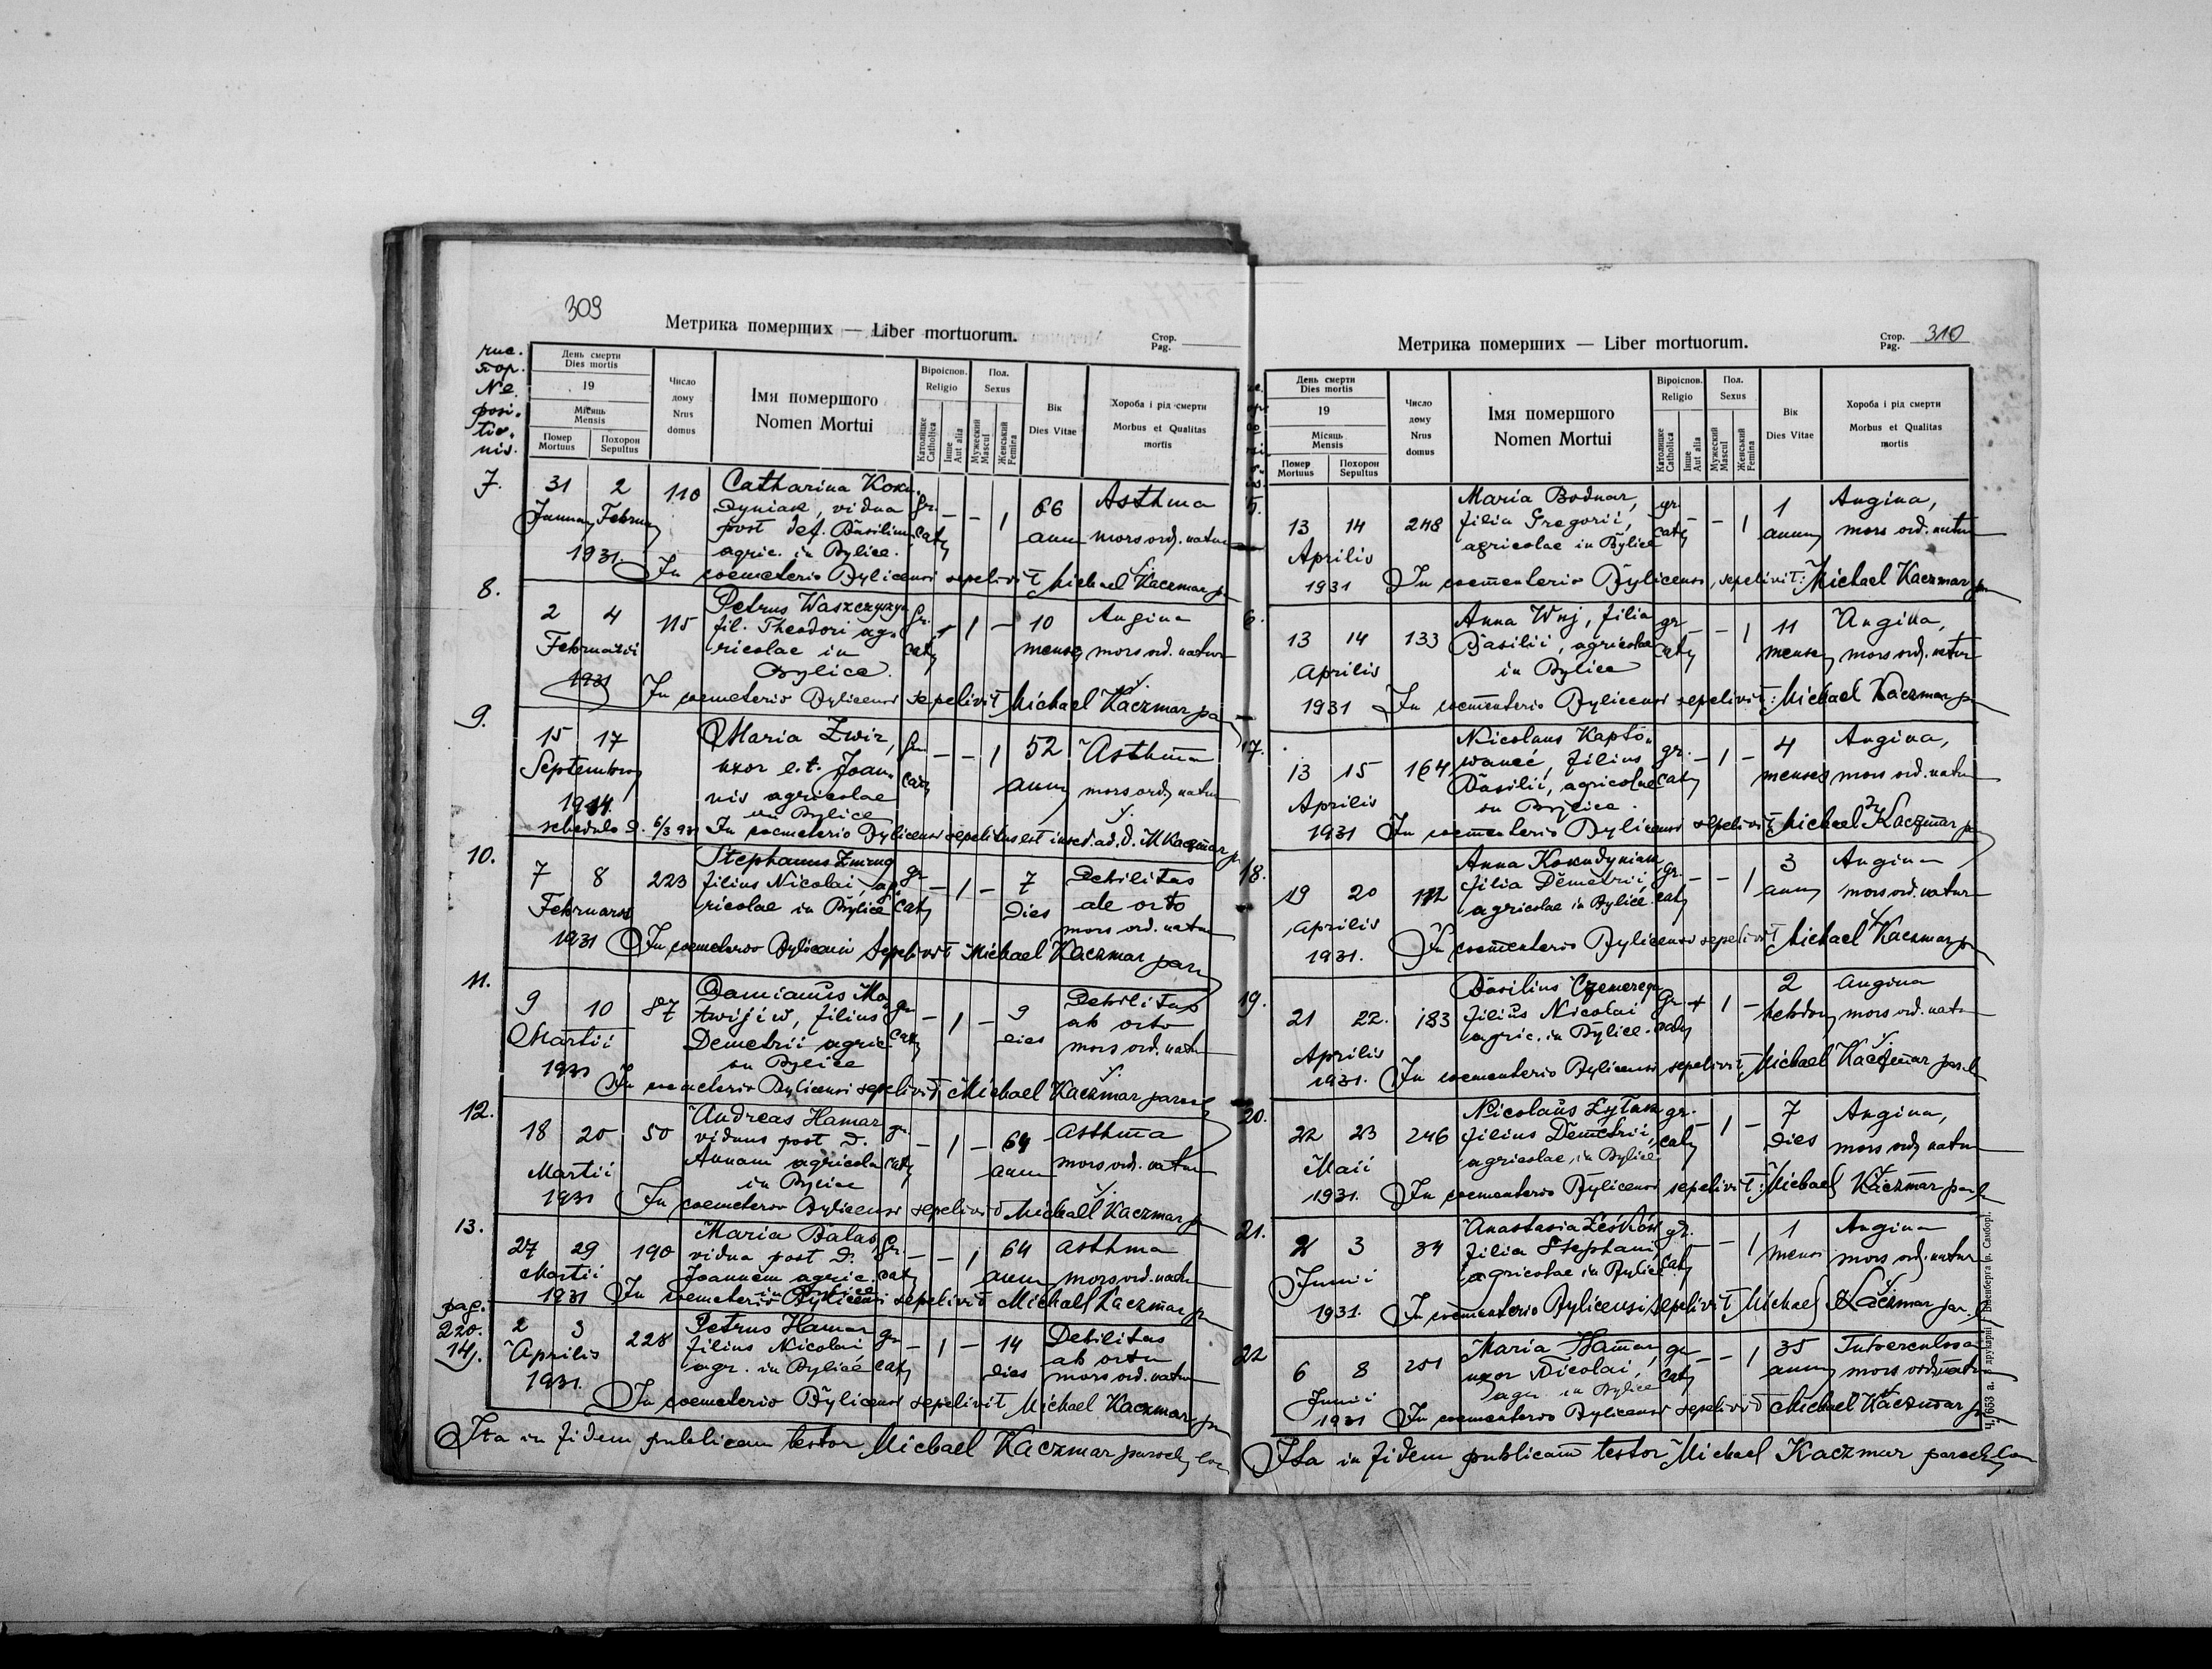 309
Метрика померших — Liber mortuorum.
Стор.
Pag.
пор.
№
posi-
tio-
nis.
День смерти
Dies mortis
19
Місяць
Mensis
Помер
Mortuus
Похорон
Sepultus
Число
дому
Nrus
domus
Імя помершого
Nomen Mortui
Віроіспов.
Religio
Католицке
Catholica
Інше
Aut alia
Пол.
Sexus
Мужеский
Mascul
Женський
Femina
Вік
Dies Vitae
Хороба і рід смерти
Morbus et Qualitas
mortis
7.
31 2 110 Catharina Koku- Gr. - - 1 66 Asthma
dyniak, vidua caty
post def. Basilium ann mors ord. natur
agric. in Bylice.
1931 In coemeterio Bylicensi sepelivit Michael Kaczmar
8.
2 4 115 Petrus Waszczyszyn Gr. 1 - 10 Angina
fil. Theodori ag- caty
Februarii ricolae in menses mors ord. natur
Bylice.
1931 In coemeterio Bylicensi sepelivit Michael Kaczmar
9.
15 17 Maria Zwir, - - 1 52 Asthma
Septembris uxor e.t. Joan- caty
1914. nis agricolae mors ord. natur
in Bylice
schedula d. 6/3 931 In coemeterio Bylicensi sepelitus est M Kaczmar
10.
7 8 223 Stephanus gr - 1 - 7 Debilitas
Februarii filius Nicolai, ag- dies
ricolae in Bylice caty mors ord. natur
1931 In coemeterio Bylicensi sepelivit Michael Kaczmar
11.
9 10 87 Damianus Ma- gr - 1 - 9 Debilitas
twijiw, filius dies ab orto
Martii Demetrii agric. caty mors ord. natur
in Bylice
1931 In coemeterio Bylicensi sepelivit Michael Kaczmar
12.
18 20 50 Andreas Hamar gr - 1 - 64 asthma
viduus post d.
Martii Annam agricola caty ann mors ord. natur
in Bylice
1931 In coemeterio Bylicensi sepelivit Michael Kaczmar
13.
27 29 190 Maria Balas Gr. - - 1 64 asthma
vidua post d.
Martii Joannem agric. caty ann mors ord. natur
in Bylice
1931 In coemeterio Bylicensi sepelivit Michael Kaczmar
pag.
220.
14.
2 3 228 Petrus Hamar gr - 1 - 14 Debilitas
Aprilis filius Nicolai ab ortu
agr. in Bylice caty dies mors ord. natur
1931. In coemeterio Bylicensi sepelivit Michael Kaczmar
Ita in fidem publicam testor Michael Kaczmar paroch loc
Метрика померших — Liber mortuorum.
Стор.
Pag. 310
День смерти
Dies mortis
19
Місяць
Mensis
Помер
Mortuus
Похорон
Sepultus
Число
дому
Nrus
domus
Імя помершого
Nomen Mortui
Віроіспов.
Religio
Католицке
Catholica
Інше
Aut alia
Пол.
Sexus
Мужеский
Mascul
Женський
Femina
Вік
Dies Vitae
Хороба і рід смерти
Morbus et Qualitas
mortis
5.
13 14 248 Maria Bodnar, gr - - 1 1 Angina,
filia Gregorii, caty mors ord. natur
Aprilis agricolae in Bylice
1931 In coementerio Bylicensi, sepelivit: Michael Kaczmar
6.
13 14 133 Anna Wnj, filia gr - - 1 11 Angina,
Basilii, agricolae caty menses mors ord. natur
Aprilis in Bylice
1931 In coementerio Bylicensi sepelivit: Michael Kaczmar
17.
13 15 164 Nicolaus Kapto- gr. - 1 - 4 Angina,
wanec, filius
Basilii, agricolae caty menses mors ord. natur
Aprilis in Bylice.
1931 In coementerio Bylicensi sepelivit Michael Kaczmar
18.
19 20 112 Anna Kokudyniak gr. - - 1 3 Angina
filia Demetrii, mors ord. natur
Aprilis agricolae in Bylice. caty
1931. In coementerio Bylicensi sepelivit Michael Kaczmar
19.
21 22. 183 Basilius Czemerega Gr. 1 - 2 angina
filius Nicolai mors ord. natur
Aprilis agric. in Bylice. caty
1931. In coementerio Bylicensi sepelivit Michael Kaczmar
20.
22 23 246 Nicolaus Zytak gr. - 1 - 7 Angina,
filius Demetrii, caty dies mors ord. natur
Maii agricolae, in Bylice
1931. In coementerio Bylicensi sepelivit: Michael Kaczmar
21.
2 3 34 Anastasia Leśków gr. - 1 1 Angina
filia Stephani, caty mors ord. natur
Junii agricolae in Bylice
1931. In coementerio Bylicensi sepelivit Michael Kaczmar
22
6 8 251 Maria Hamar, gr - - 1 35 Tuberculosa
uxor Nicolai, caty mors ord. natur
Junii agr. in Bylice
1931 In coementerio Bylicensi sepelivit Michael Kaczmar
Ita in fidem publicam testor Michael Kaczmar paroch